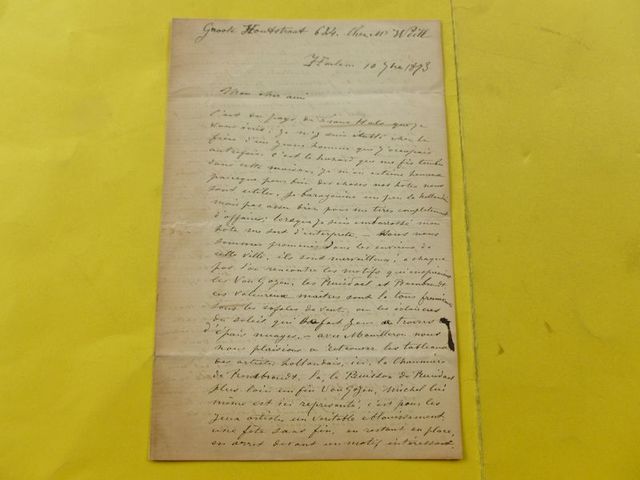 Groote Houtstraat 624. Chez Mr Weill
Harlem 10 7bre 1873
Mon cher ami
C'est du pays, de Frans Hals que je
vous écris; je m'y suis établi chez le
frère d'un jeune homme que j'occupais
autrefois. C'est le hazard qui me fis tomber
dans cette maison, je m'en estime heureux
parceque pour bien des choses nos hotes nous
sont utiles. Je baragouine un peu de hollandais
mais pas assez bien pour me tirer complètement
d'affaires; lorsque je suis embarrassé mon
hôte me sert d'interprète. — Nous nous
sommes promenés dans les environs de
cette ville, ils sont merveilleux; à chaque
pas l'on rencontre les motifs qui inspirèrent
les Van Goyen, les Ruisdael et Rembrandt
ces valeureux maîtres sont là tous
sous les rafales de vent, ou les éclaircies
du soleil qui se fait jour à travers
d'épais nuages. — avec Mouilleron nous
nous plaisions à retrouver les tableaux
des artistes hollandais, ici, la Chaumière
de Rembrandt. là, le Buisson de Ruisdael
plus loin un fin Van Goyen, Michel lui
même est ici représenté, c'est pour les
yeux artistes un véritable éblouissement
une fête sans fin, en restant en place,
en arrêt devant un motif intéressant